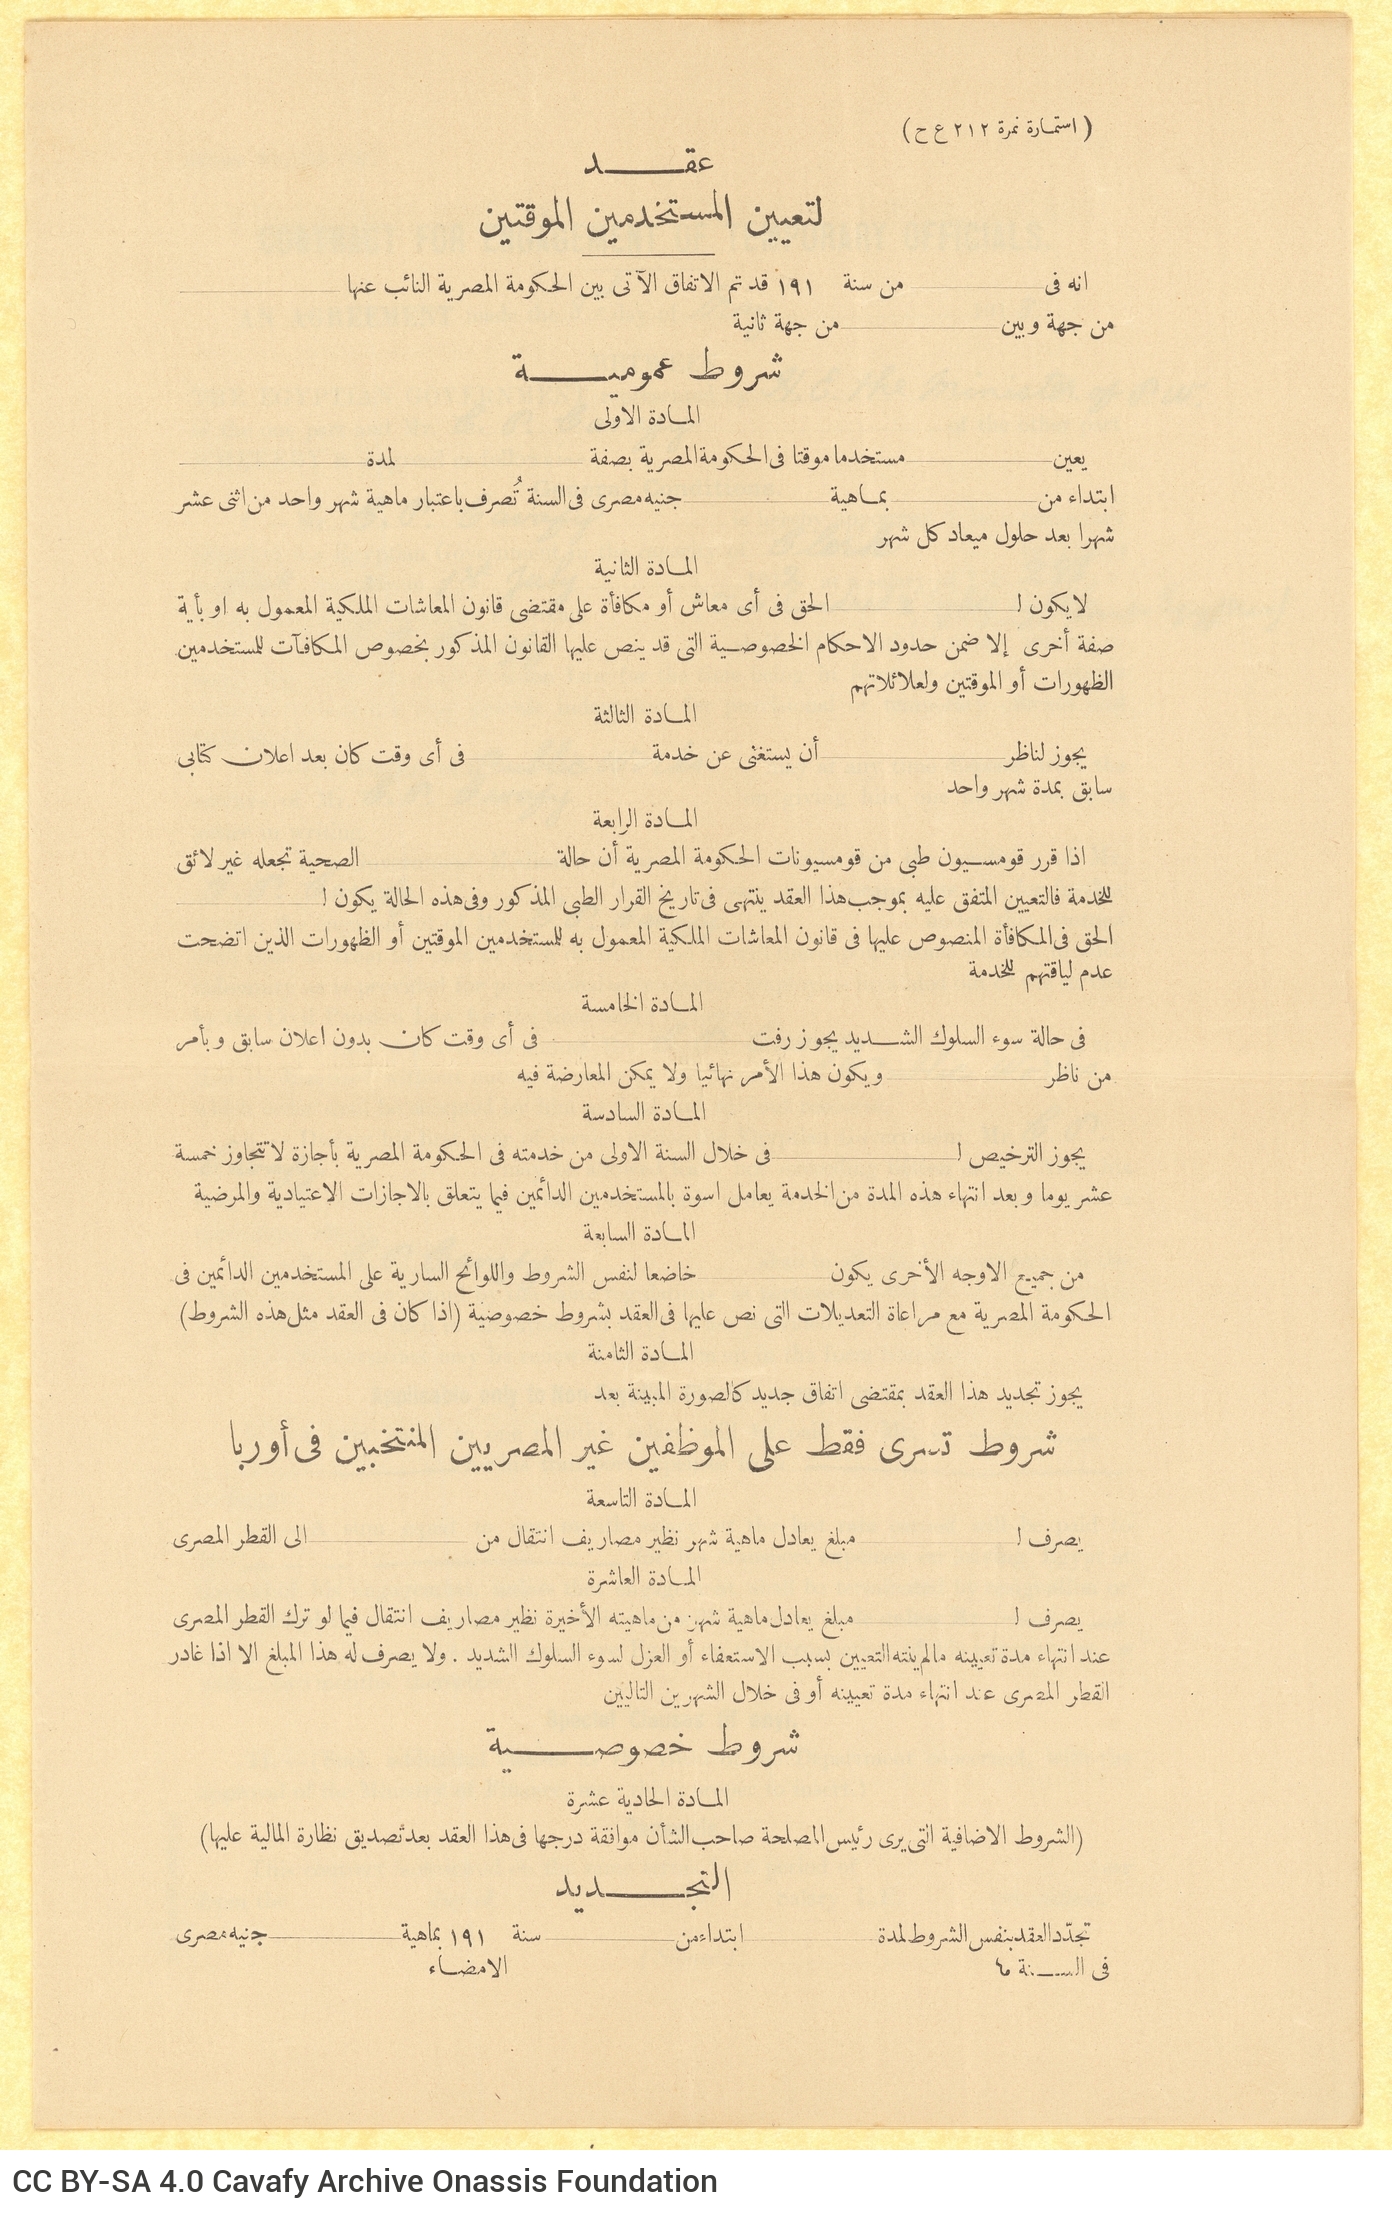 ( استمارة نمرة ٢١٢ ع ح )
عقـــد
لتعيين المستخدمين الموقتين
انه فى من سنة ١٩١ قد تم الاتفاق الآتى بين الحكومة المصرية النائب عنها
من جهة وبين من جهة ثانية
شروط عموميـــة
المادة الاولى
يعين مستخدما موقتا فى الحكومة المصرية بصفة لمدة
ابتداء من بماهية جنيه مصرى فى السنة تُصرف باعتبار ماهية شهر واحد من اثنى عشر
شهرا بعد حلول ميعاد كل شهر
المادة الثانية
لا يكون ل الحق فى أى معاش أو مكافأة على مقتضى قانون المعاشات الملكية المعمول به او بأية
صفة أخرى إلا ضمن حدود الاحكام الخصوصية التى قد ينص عليها القانون المذكور بخصوص المكافآت للمستخدمين
الظهورات أو الموقتين ولعائلاتهم
المادة الثالثة
يجوز لناظر أن يستغنى عن خدمة فى أى وقت كان بعد اعلان كتابى
سابق بمدة شهر واحد
المادة الرابعة
اذا قرر قومسيون طبى من قومسيونات الحكومة المصرية أن حالة الصحية تجعله غير لائق
للخدمة فالتعيين المتفق عليه بموجب هذا العقد ينتهى فى تاريخ القرار الطبى المذكور وفى هذه الحالة يكون ل
الحق فى المكافأة المنصوص عليها فى قانون المعاشات الملكية المعمول به للمستخدمين الموقتين أو الظهورات الذين اتضحت
عدم لياقتهم للخدمة
المادة الخامسة
فى حالة سوء السلوك الشديد يجوز رفت فى أى وقت كان بدون اعلان سابق وبأمر
من ناظر ويكون هذا الأمر نهائيا ولا يمكن المعارضة فيه
المادة السادسة
يجوز الترخيص ل فى خلال السنة الاولى من خدمته فى الحكومة المصرية بأجازة لا تتجاوز خمسة
عشر يوما وبعد انتهاء هذه المدة من الخدمة يعامل اسوة بالمستخدمين الدائمين فيما يتعلق بالاجازات الاعتيادية والمرضية
المادة السابعة
من جميع الاوجه الأخرى يكون خاضعا لنفس الشروط واللوائح السارية على المستخدمين الدائمين فى
الحكومة المصرية مع مراعاة التعديلات التى نص عليها فى العقد بشروط خصوصية (اذا كان فى العقد مثل هذه الشروط)
المادة الثامنة
يجوز تجديد هذا العقد بمقتضى اتفاق جديد كالصورة المبينة بعد
شروط تسرى فقط على الموظفين غير المصريين المنتخبين فى أوربا
المادة التاسعة
يصرف ل مبلغ يعادل ماهية شهر نظير مصاريف انتقال من الى القطر المصرى
المادة العاشرة
يصرف ل مبلغ يعادل ماهية شهر من ماهيته الأخيرة نظير مصاريف انتقال فيما لو ترك القطر المصرى
عند انتهاء مدة تعيينه مالم ينته التعيين بسبب الاستعفاء أو العزل لسوء السلوك الشديد . ولا يصرف له هذا المبلغ الا اذا غادر
القطر المصرى عند انتهاء مدة تعيينه أو فى خلال الشهرين التاليين
شروط خصوصـــية
المادة الحادية عشرة
(الشروط الاضافية التى يرى رئيس المصلحة صاحب الشأن موافقة درجها فى هذا العقد بعد تصديق نظارة المالية عليها)
التجـــديد
تجدّد العقد بنفس الشروط لمدة ابتداء من سنة ١٩١ بماهية جنيه مصرى
فى الســنة
الامضاء
CC BY-SA 4.0 Cavafy Archive Onassis Foundation